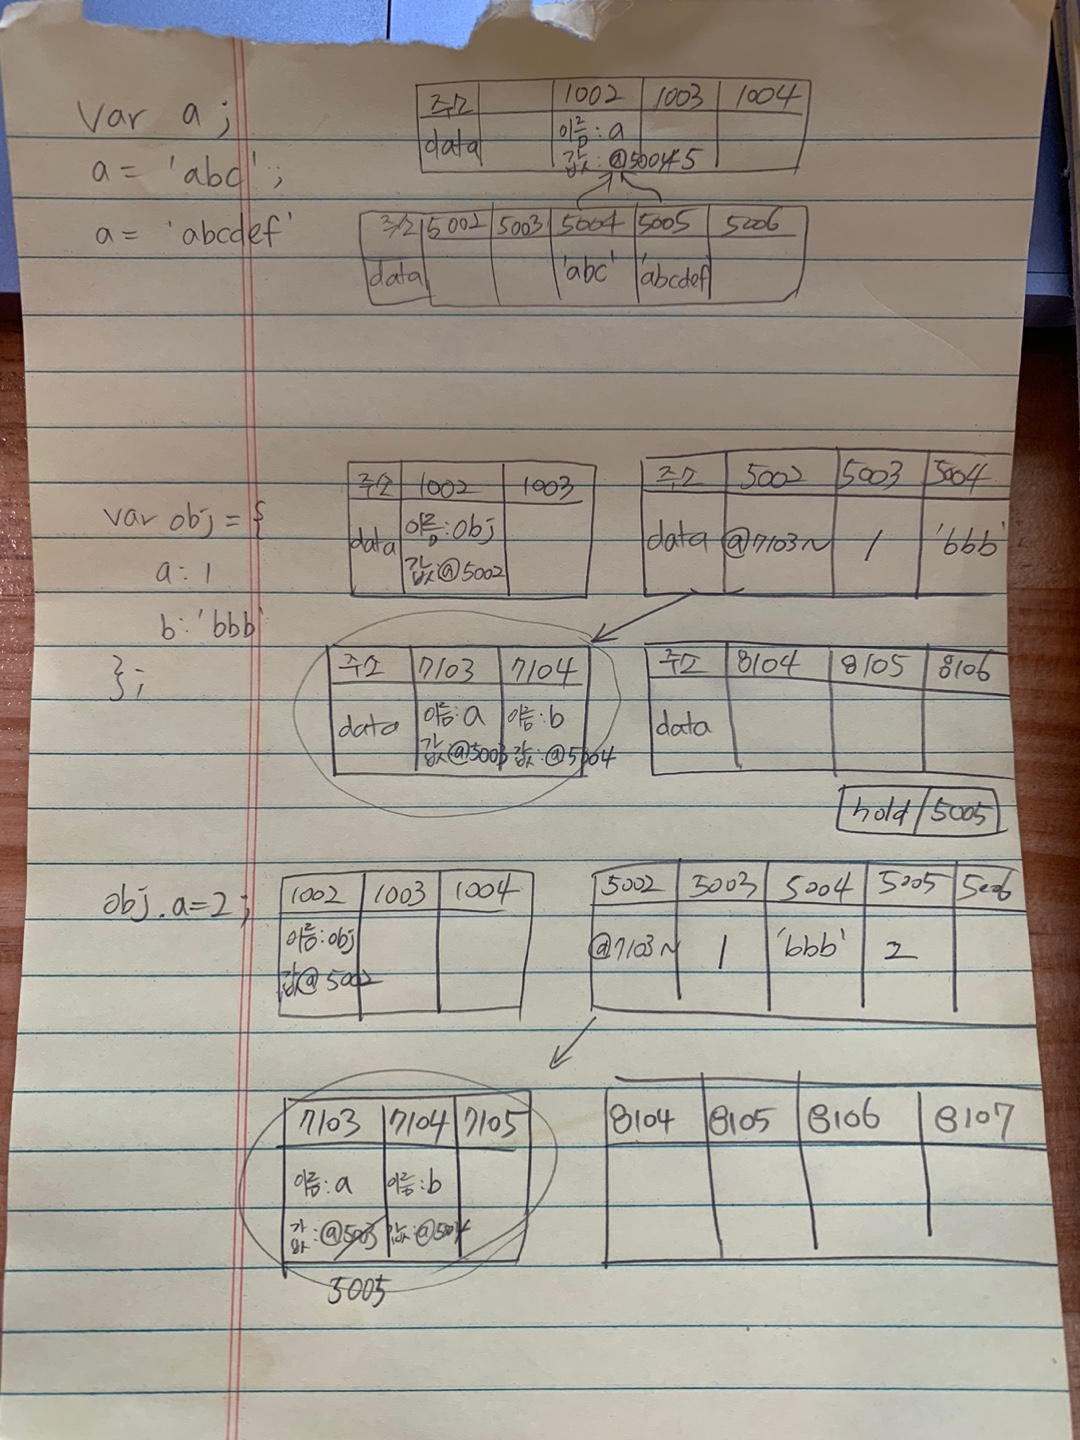 var a;
a = 'abc';
a = 'abcdef'
주소 1002 1003 1004
data 이름:a
값:@50045
주소 5002 5003 5004 5005 5006
data 'abc' 'abcdef'
var obj = {
a: 1
b: 'bbb'
};
주소 1002 1003
data 이름:obj
값:@5002
주소 5002 5003 5004
data @7103~ 1 'bbb'
주소 7103 7104
data 이름:a 이름:b
값@5003 값:@5004
주소 8104 8105 8106
data
hold 5005
obj.a=2;
1002 1003 1004
이름:obj
값@5002
5002 5003 5004 5005 5006
@7103~ 1 'bbb' 2
7103 7104 7105
이름:a 이름:b
값:@5003 값:@5004
5005
8104 8105 8106 8107